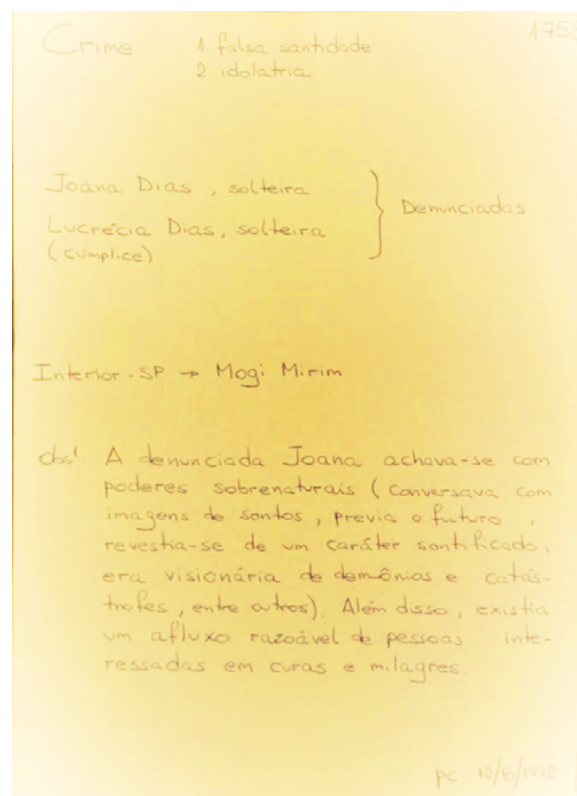 Crime 1. falsa santidade 1758
2. idolatria
Joana Dias, solteira
Lucrécia Dias, solteira
(cúmplice)
} Denunciadas
Interior-SP → Mogi Mirim
Obs': A denunciada Joana achava-se com
poderes sobrenaturais (conversava com
imagens de santos, previa o futuro,
revestia-se de um caráter santificado,
era visionária de demônios e catás-
trofes, entre outros). Além disso, existia
um afluxo razoável de pessoas inte-
ressadas em curas e milagres.
pc 12/8/1992